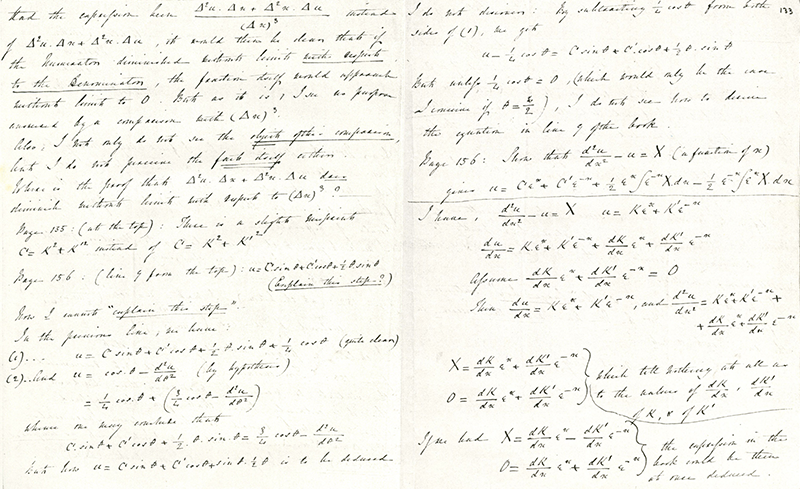 Had the expression been (Δ²u . Δx + Δ²x . Δu)/(Δx)³ instead
of Δ²u . Δx + Δ²x . Δu, it would then be clear that if
the Numerator diminished without limit with respect
to the Denominator, the fraction itself would approach
without limit to 0. But as it is, I see no purpose
answered by a comparison with (Δx)³.
Also; I not only do not see the object of the comparison,
but I do not perceive the fact itself either.
Where is the proof that Δ²u . Δx + Δ²x . Δu does
diminish without limit with respect to (Δx)³?
Page 135: (at the top): There is a slight misprint
C = K² + K'² instead of C = K² + K'²
Page 156: (line 9 from the top): u = C sin θ + C' cos θ + ½ θ . sin θ
(Explain this step?)
Now I cannot "explain this step".
In the previous line, we have:
(1)... u = C sin θ + C' cos θ + ½ θ . sin θ + ¼ cos θ (quite clear)
(2)... And u = cos θ - d²u/dθ² (by hypothesis)
= ¼ cos θ + (¾ cos θ - d²u/dθ²)
whence one may conclude that
C . sin θ + C' cos θ + ½ . θ . sin θ = ¾ cos θ - d²u/dθ²
But how u = C sin θ + C' cos θ + sin θ . ½ θ is to be deduced
133
I do not discover: By subtracting ¼ cos θ from both
sides of (1), we get
u - ¼ cos θ = C sin θ + C' cos θ + ½ θ . sin θ
But unless ¼ cos θ = 0, (which would only be the case
I conceive if θ = π/2), I do not see how to derive
the equation in line 9 of the book.
Page 156: Show that d²u/dx² - u = X (a function of x)
gives u = Cεˣ + C'ε⁻ˣ + ½ εˣ ∫ε⁻ˣ X dx - ½ ε⁻ˣ ∫εˣ X dx
I have, d²u/dx² - u = X u = Kεˣ + K'ε⁻ˣ
du/dx = Kεˣ + K'ε⁻ˣ + dK/dx εˣ + dK'/dx ε⁻ˣ
Assume dK/dx εˣ + dK'/dx ε⁻ˣ = 0
Then du/dx = Kεˣ + K'ε⁻ˣ, and d²u/dx² = Kεˣ + K'ε⁻ˣ +
+ dK/dx εˣ + dK'/dx ε⁻ˣ
X = dK/dx εˣ + dK'/dx ε⁻ˣ
0 = dK/dx εˣ + dK'/dx ε⁻ˣ
which tell nothing at all as
to the values of dK/dx, dK'/dx
of K, & of K'
If we had X = dK/dx εˣ - dK'/dx ε⁻ˣ
0 = dK/dx εˣ + dK'/dx ε⁻ˣ
the expression in the
book could be then
at once deduced.